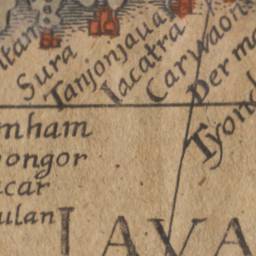 ntam
Sura
Tanjonjaua
Iacatra
Carvaon
Der ma
Tyond
mham
ongor
car
ulan
IAVA